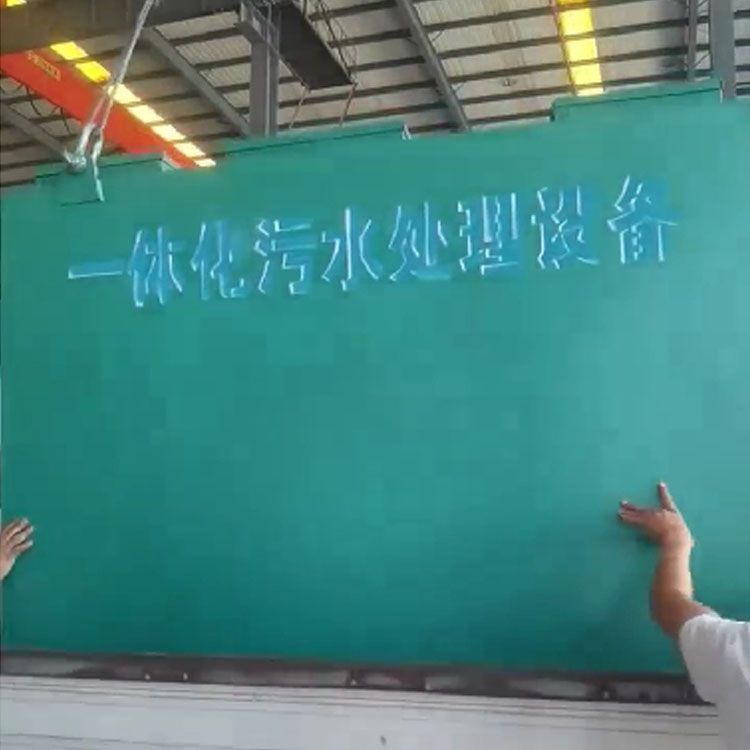 一体化污水处理设备